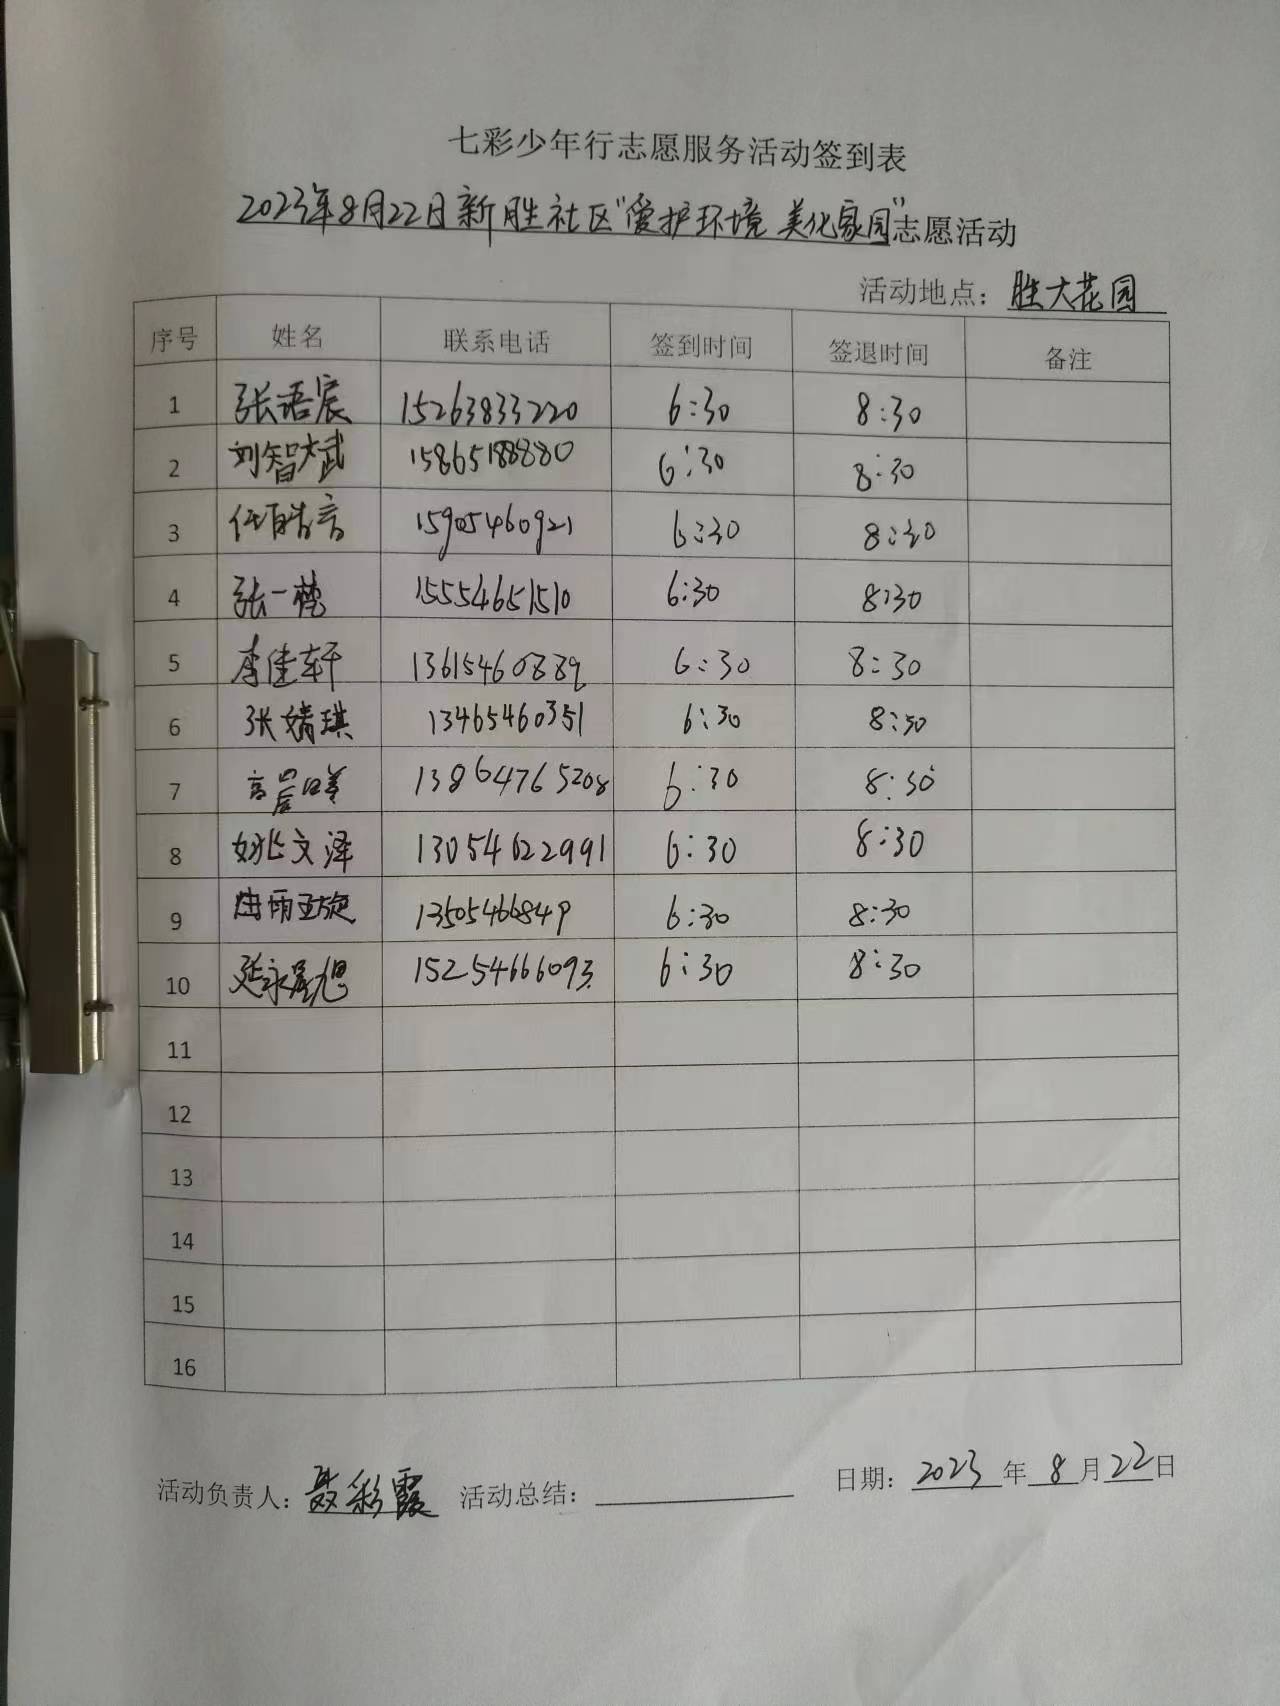 七彩少年行志愿服务活动签到表
2023年8月22日新胜社区“爱护环境 美化家园”志愿活动
活动地点：胜大花园
序号 姓名 联系电话 签到时间 签退时间 备注
1 张语宸 15263833220 6:30 8:30
2 刘智斌 15865188880 6:30 8:30
3 15905460921 6:30 8:30
4 张一 15554651510 6:30 8:30
5 李佳轩 13615460889 6:30 8:30
6 张婧琪 13465460351 6:30 8:30
7 高晨曦 13864765208 6:30 8:30
8 姚文泽 13054622991 6:30 8:30
9 13505466849 6:30 8:30
10 15254666093 6:30 8:30
11
12
13
14
15
16
活动负责人：聂彩霞 活动总结： 日期：2023年8月22日